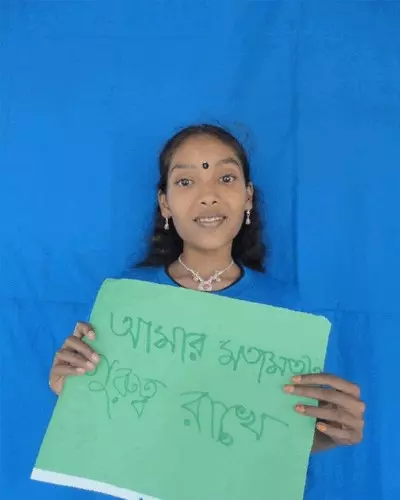 আমার মতামতও
গুরুত্ব রাখে